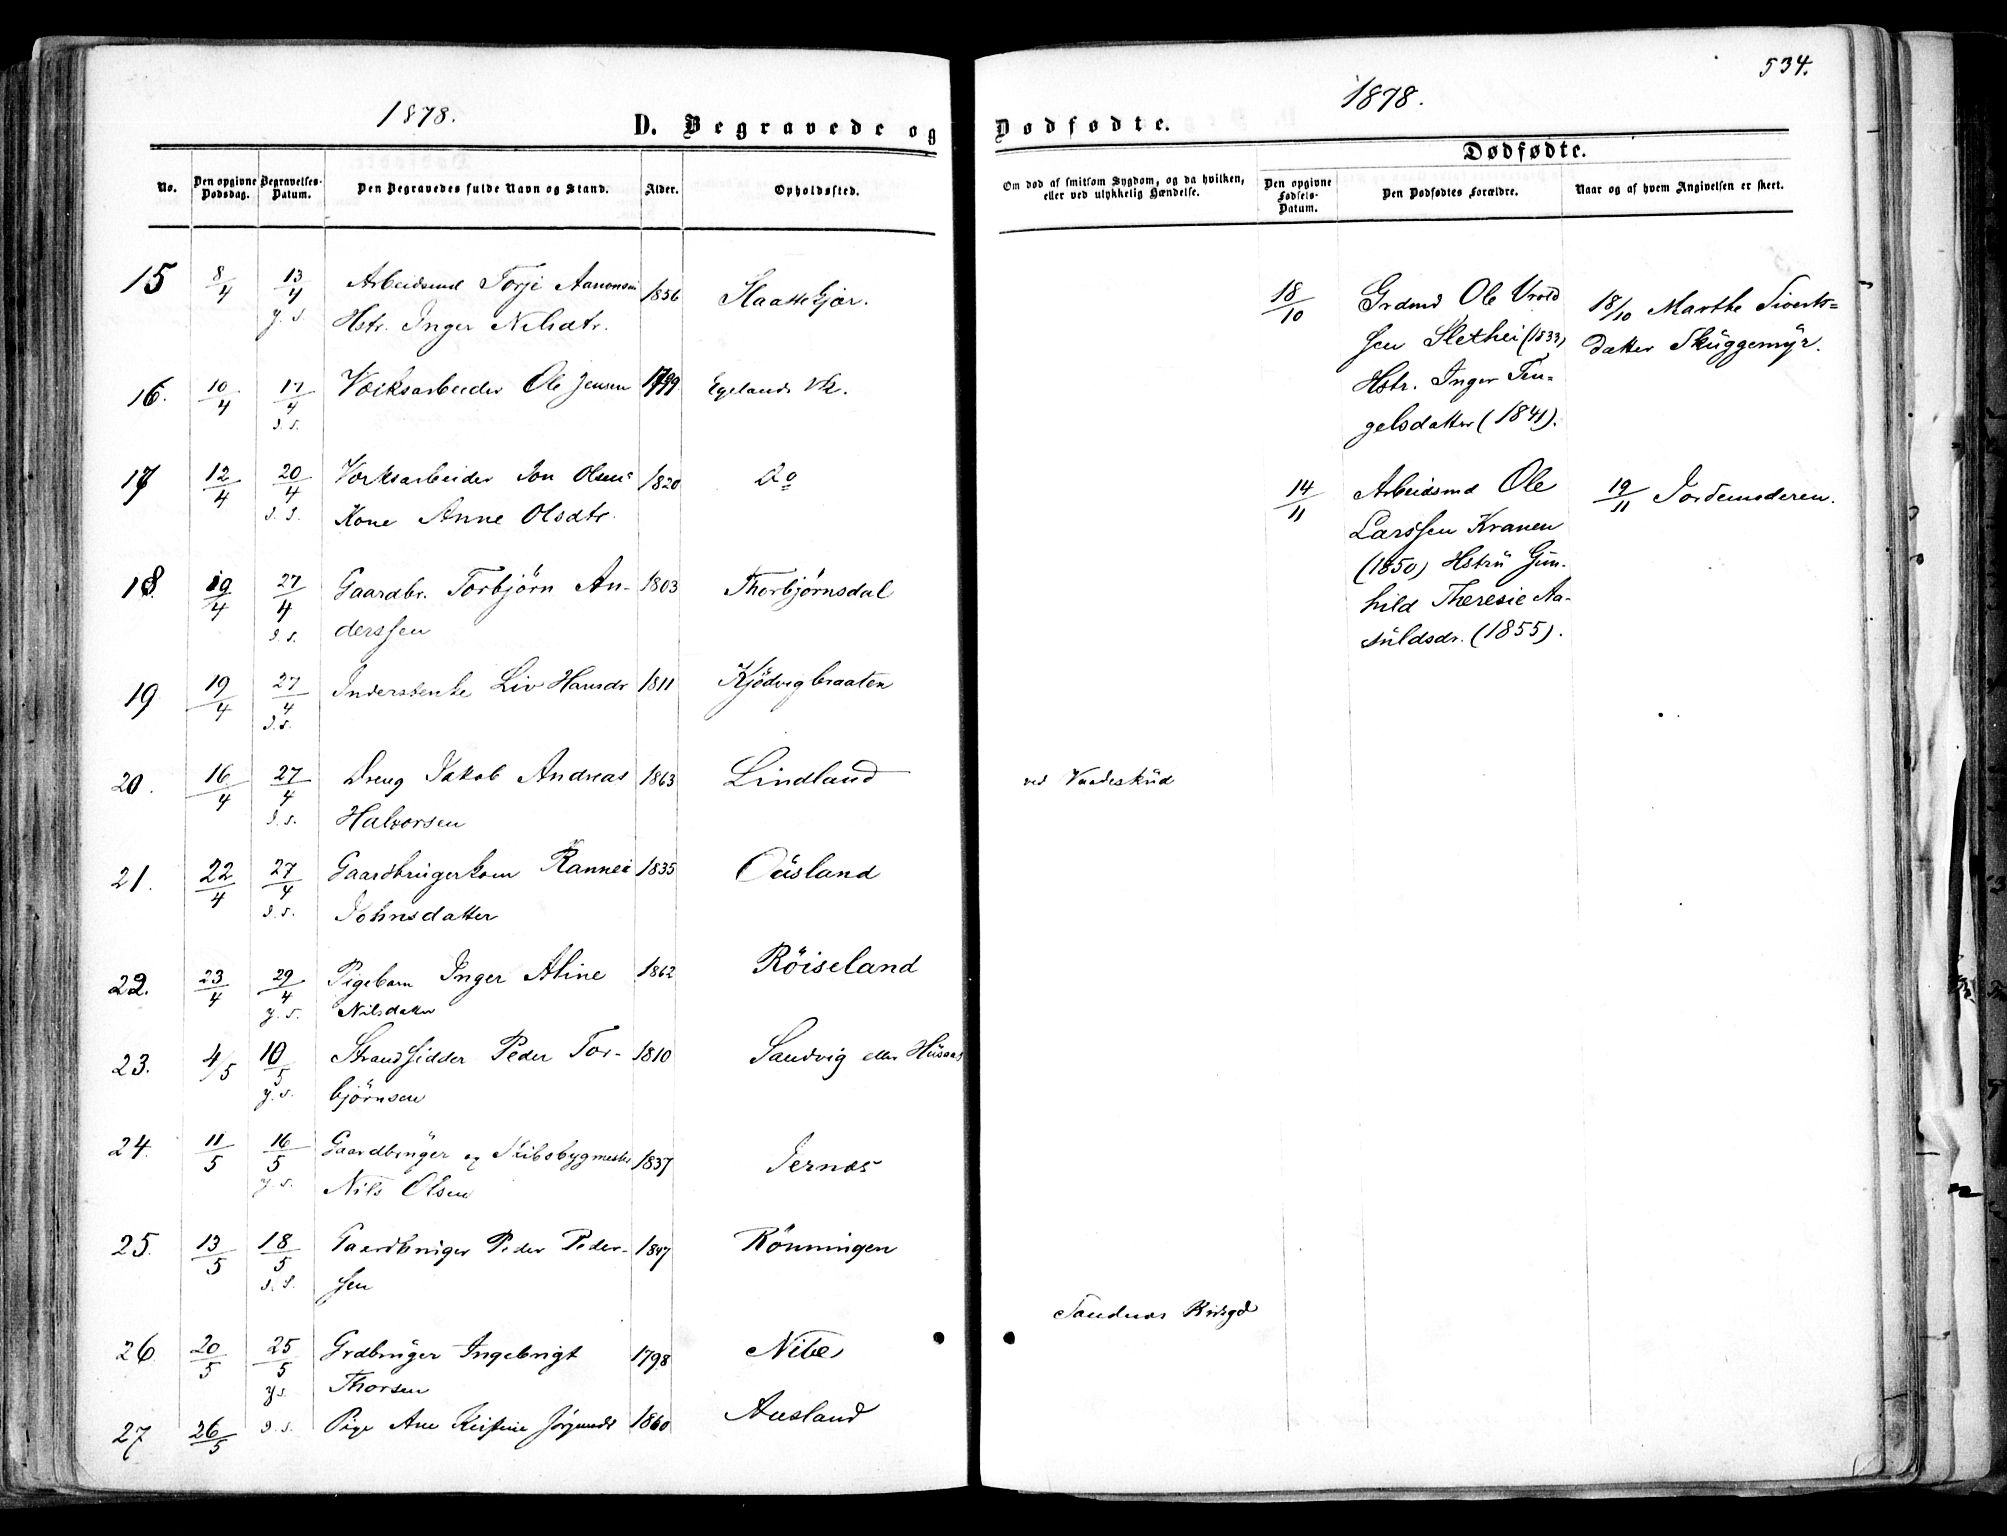 1878.
D. Begravede og
No.
Den opgivne Dødsdag.
Begravelses-Datum.
Den Begravedes fulde Navn og Stand.
Alder.
Opholdssted.
15 8/4 13/4 Arbeidsmd Torje Aanonsen 1856
y. s. Hstr. Inger Nilsdtr.
16. 10/4 17/4 Værksarbeider Ole Jensen 1799 Egelands Vk.
s. s.
17 12/4 20/4 Værksarbeider Jon Olsens 1820 Do
s. s. Kone Anne Olsdtr.
18. 19/4 27/4 Gaardbr. Torbjörn An- 1803 Thorbjørnsdal
s. s. derssen
19 19/4 27/4 Inderstenke Liv Hansdr 1811 Kjödvigbraaten
s. s.
20. 16/4 27/4 Dreng Jakob Andreas 1863 Lindland
s. s. Halvorsen
21. 22/4 27/4 Gaardbrugerkone Rannei 1835 Ousland
s. s. Johnsdatter
22. 23/4 29/4 Pigebarn Inger Aline 1862 Röiseland
y. s. Nilsdatter
23. 4/5 10/5 Strandsidder Peder Tor- 1810 Sandvig eller Husaas
y. s. bjørnsen
24. 11/5 16/5 Gaardbruger og Skibsbygmester 1837 Jernæs
y. s. Nils Olsen
25. 13/5 18/5 Gaardbruger Peder Peder- 1847 Rönningen
s. s. sen
26 20/5 25/5 Grdbruger Ingebrigt 1798 Nibe
y s. Thorsen
27 26/5 s. s. Pige Ane Kristine 1860 Ausland
534.
1878.
Dødfødte.
Dødfødte.
Om død af smitsom Sygdom, og da hvilken,
eller ved ulykkelig Hændelse.
Den opgivne Fødsels-Datum.
Den Dødfødtes Forældre.
Naar og af hvem Angivelsen er skeet.
18/10 Grdmd Ole Vrold 18/10 Marthe Siverts-
sen Slethei (1833) datter Skuggemyr.
Hstr. Inger Ten-
gelsdatter (1841).
14/11 Arbeidsmd Ole 19/11 Jordemoderen.
Larssen Kranen
(1850) Hstru Gun-
hild Theresie Aa-
suldsdr. (1855).
ved Vaadeskud
Sandnæs Kirkegd